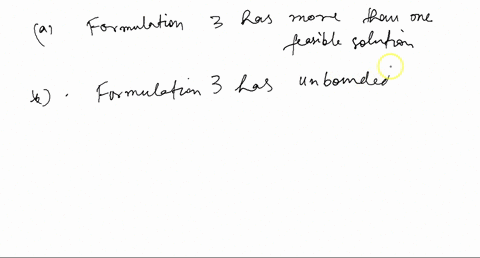 (a) Formulation 3 has more than one
feasible solution
b) . Formulation 3 has unbounded